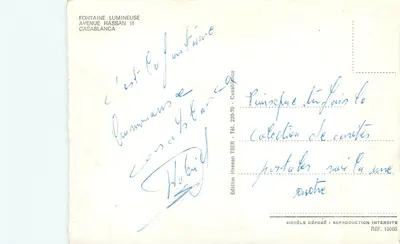 FONTAINE LUMINEUSE
AVENUE HASSAN II
CASABLANCA
c'est la fontaine
lumineuse
casablanca
Edition Hassan TBER - Tél. 220-70 - Casablanca
Puisque tu fais la
colection de cartes
postales voilà une
autre
MODÈLE DÉPOSÉ - REPRODUCTION INTERDITE
REF.